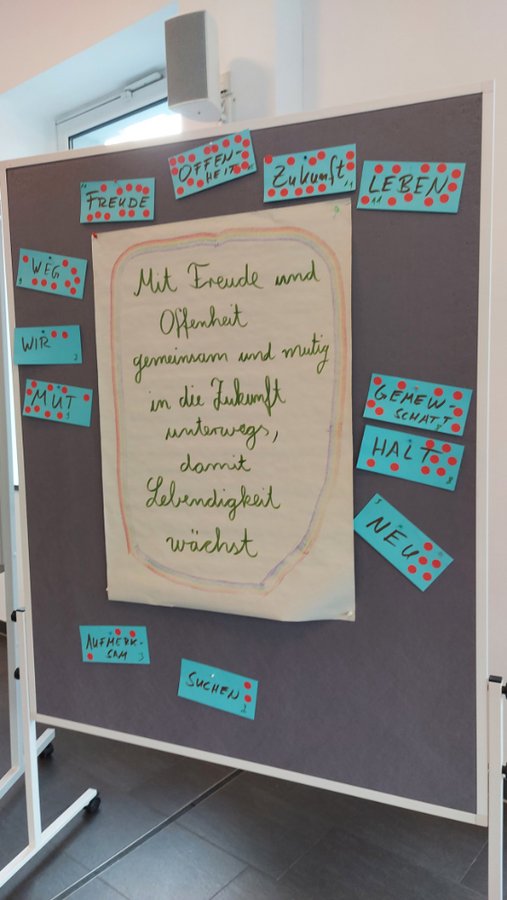 FREUDE
OFFEN-
HEIT
Zukunft
11
LEBEN
11
WEG
9
WIR
2
MUT
Mit Freude und
Offenheit
gemeinsam und mutig
in die Zukunft
unterwegs,
damit
Lebendigkeit
wächst
GEMEIN-
SCHAFT
HALT
8
NEU
5
AUFMERK-
SAM
3
SUCHEN
2